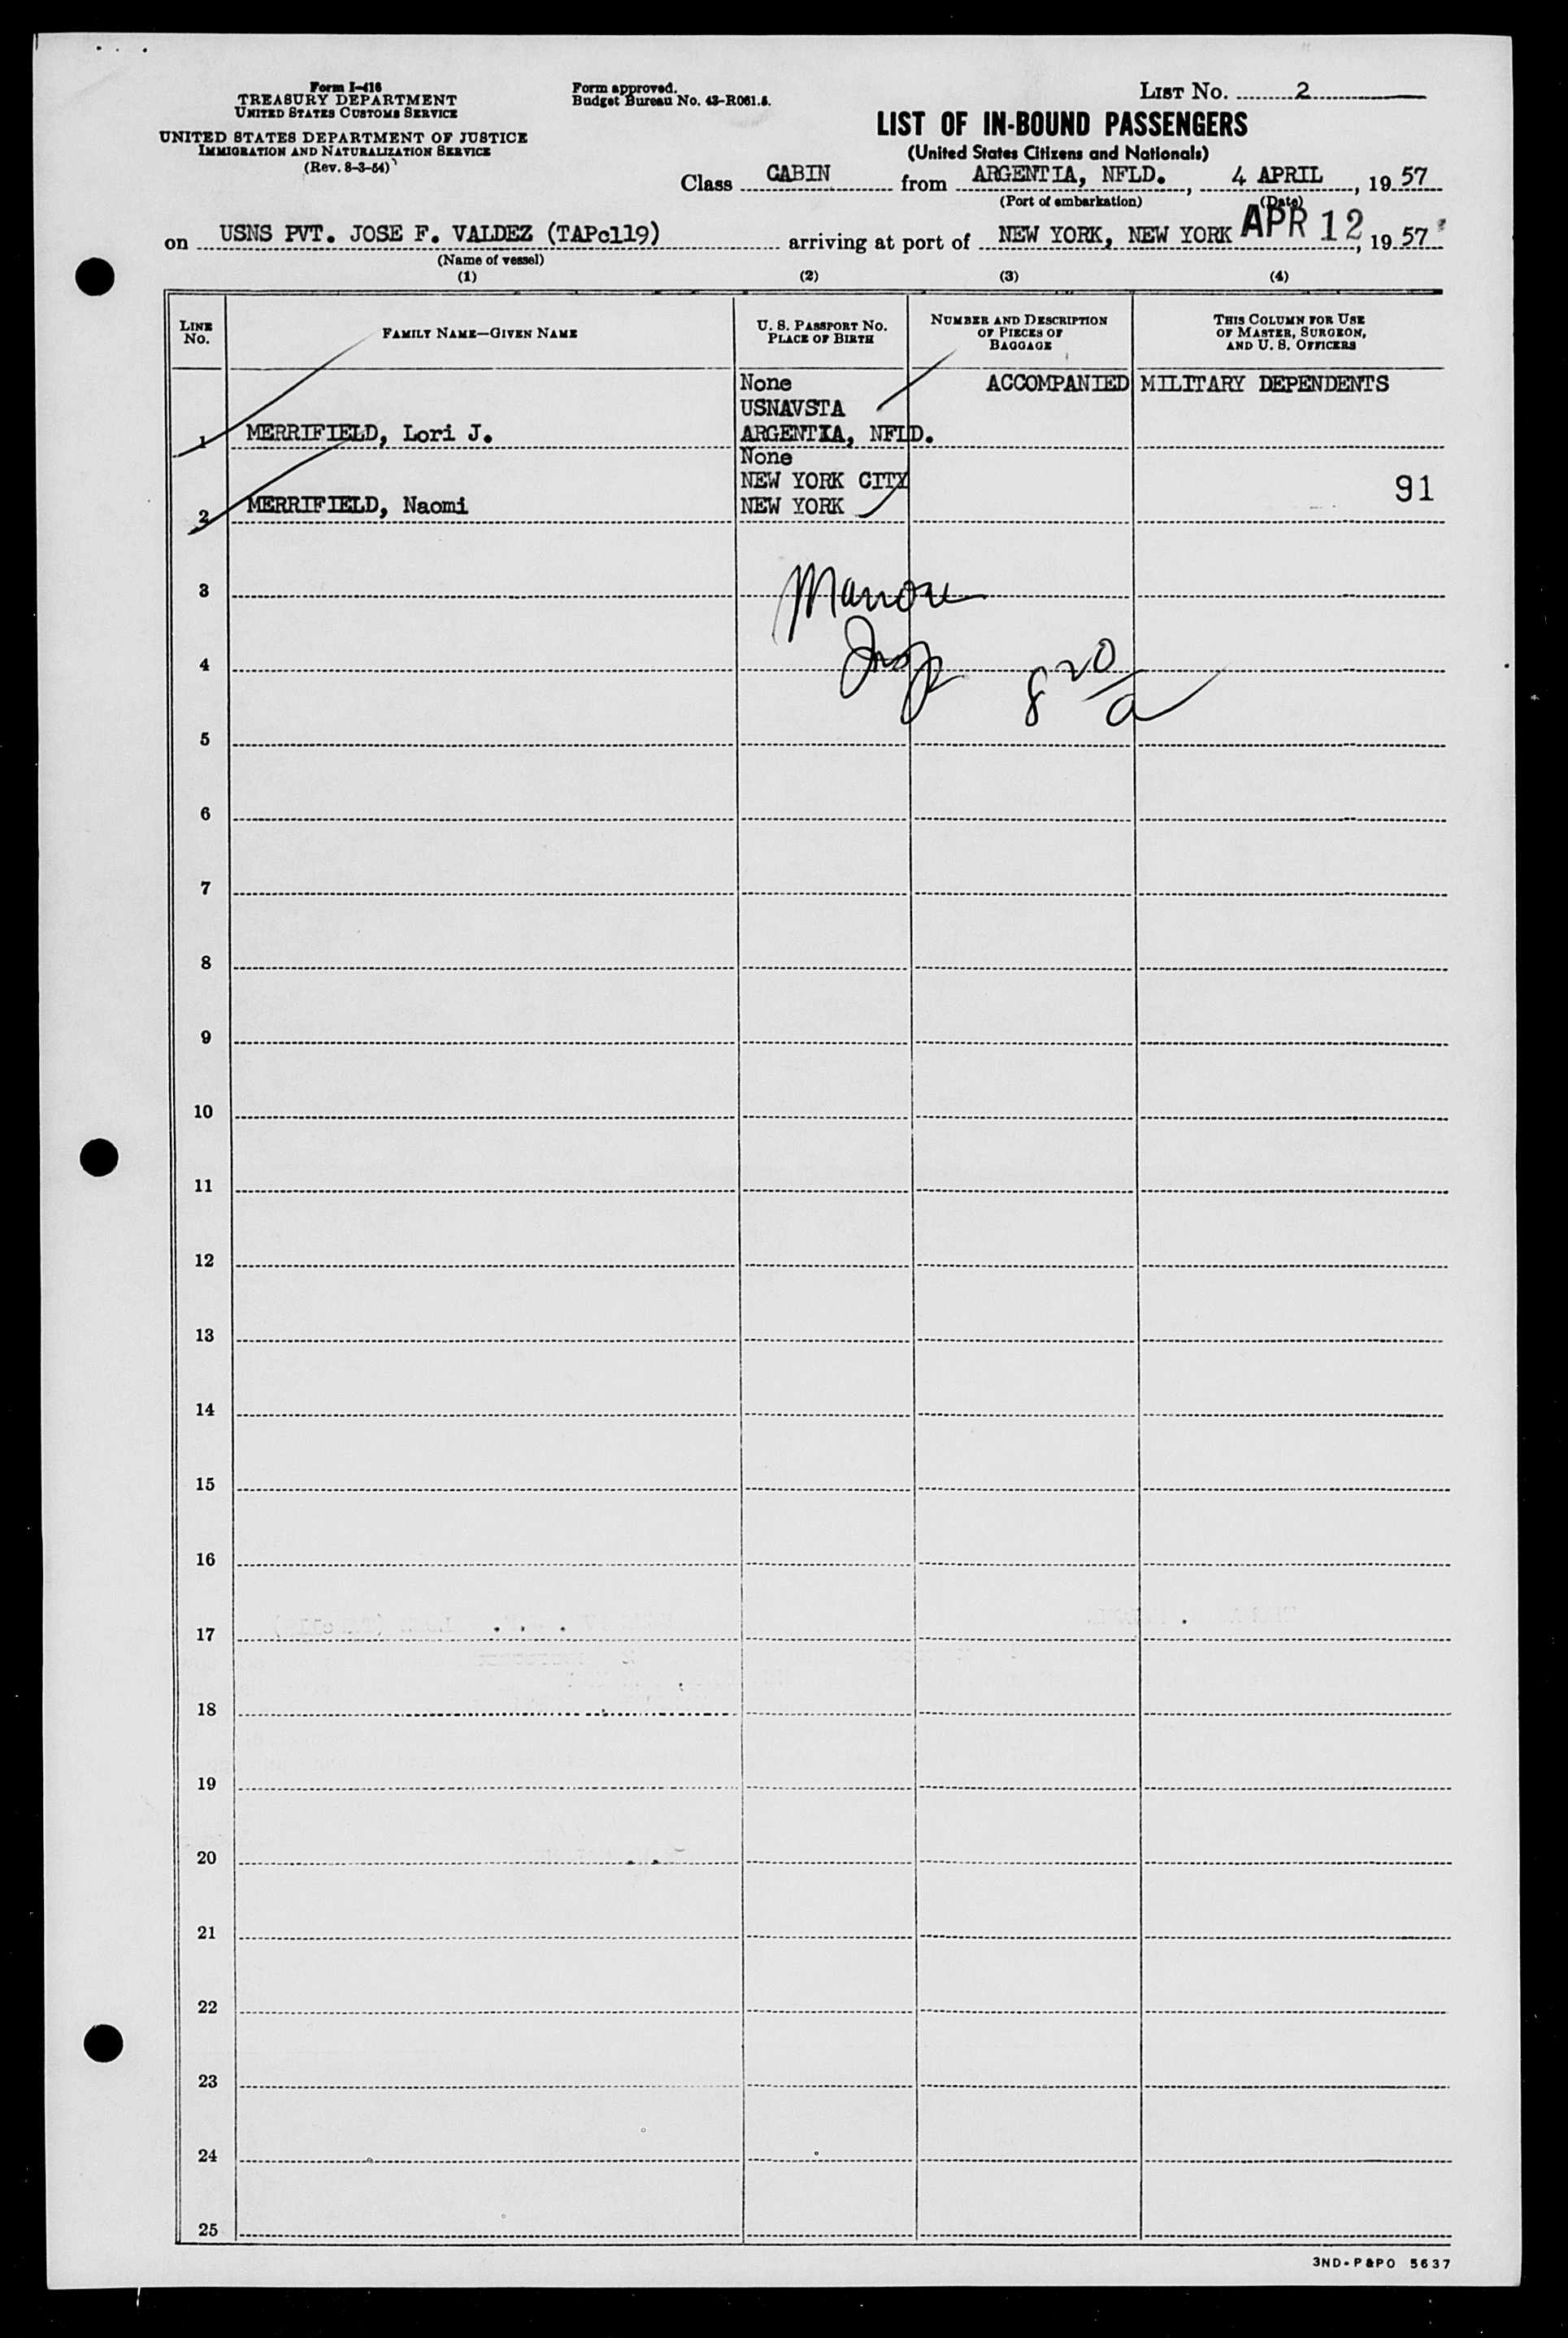 Form I-416
TREASURY DEPARTMENT
UNITED STATES CUSTOMS SERVICE
UNITED STATES DEPARTMENT OF JUSTICE
IMMIGRATION AND NATURALIZATION SERVICE
(Rev. 8-3-54)
Form approved.
Budget Bureau No. 43-R061.5.
LIST No. 2
LIST OF IN-BOUND PASSENGERS
(United States Citizens and Nationals)
Class CABIN from ARGENTIA, NFLD., 4 APRIL, 19 57
(Port of embarkation) (Date)
on USNS PVT. JOSE F. VALDEZ (TAPc119) arriving at port of NEW YORK, NEW YORK APR 12, 19 57
(Name of vessel)
(1) (2) (3) (4)
LINE No. FAMILY NAME—GIVEN NAME U. S. PASSPORT NO. PLACE OF BIRTH NUMBER AND DESCRIPTION OF PIECES OF BAGGAGE THIS COLUMN FOR USE OF MASTER, SURGEON, AND U. S. OFFICERS
None ACCOMPANIED MILITARY DEPENDENTS
USNAVSTA
1 MERRIFIELD, Lori J. ARGENTIA, NFLD.
None
NEW YORK CITY 91
2 MERRIFIELD, Naomi NEW YORK
3
4 8 20/a
5
6
7
8
9
10
11
12
13
14
15
16
17
18
19
20
21
22
23
24
25
3ND-P&PO 5637